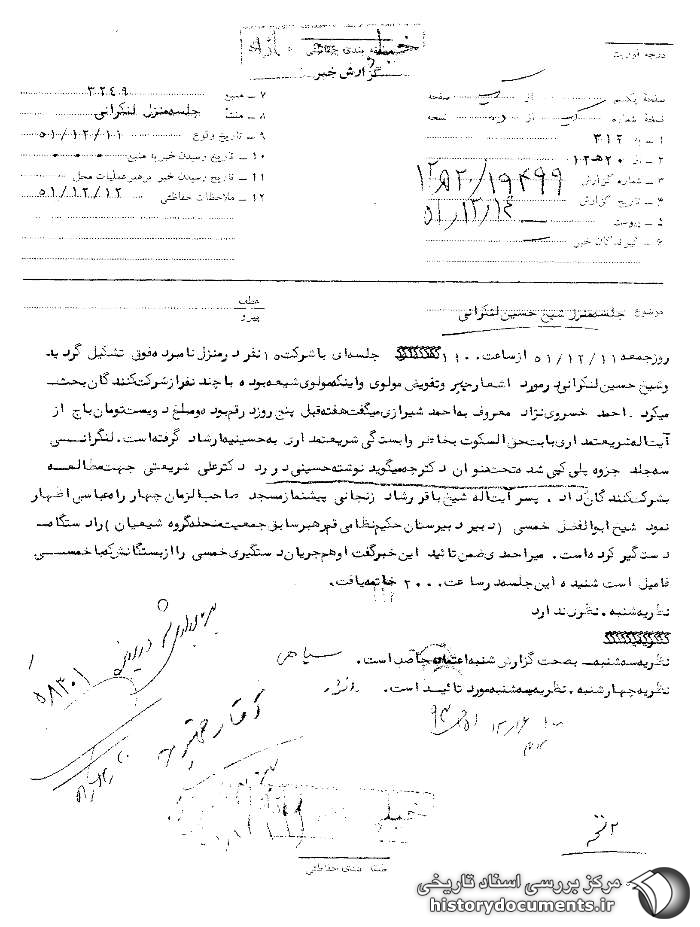 خیلی
طبقه بندی حفاظتی
گزارش خبر
درجه فوریت
صفحه یکم از یک صفحه
نسخه شماره یک از نسخه
۱ ــ به ۳۱۲
۲ ــ از ۲۰ ه‍ ۱۲
۳ ــ شماره گزارش ۱۹۴۹۹/۲۰ ه‍ ۱۲
۴ ــ تاریخ گزارش ۵۱/۱۲/۱۴
۵ ــ پیوست
۶ ــ گیرندگان خبر
۷ ــ منبع ۳۲۴۹
۸ ــ منشأ جلسه منزل لنکرانی
۹ ــ تاریخ وقوع ۵۱/۱۲/۱۱
۱۰ ــ تاریخ رسیدن خبر به منبع
۱۱ ــ تاریخ رسیدن خبر به رهبر عملیات محل
۱۲ ــ ملاحظات حفاظتی ۵۱/۱۲/۱۲
موضوع جلسه منزل شیخ حسین لنکرانی
عطف
پیرو
روز جمعه ۵۱/۱۲/۱۱ از ساعت جلسه‌ای با شرکت ۱۵ نفر در منزل نامبرده فوق تشکیل گردید
و شیخ حسین لنکرانی در مورد اشعار جبر و تفویض مولوی و اینکه مولوی شیعه بوده با چند نفر از شرکت کنندگان بحث
میکرد . احمد خسروی نژاد معروف به احمد شیرازی میگفت هفته قبل پنج روزد رقم بوده و مبلغ دویست تومان باج از
آیت‌اله شریعتمداری بابت حق السکوت بخاطر وابستگی شریعتمداری به حسینیه ارشاد گرفته است . لنگرانی
سه جلد جزوه پلی کپی شده تحت عنوان دکتر چه میگوید نوشته حسینی در رد دکتر علی شریعتی جهت مطالعه
بشرکت کنندگان داد . پسر آیت‌اله شیخ باقر رشاد زنجانی پیشنماز مسجد صاحب الزمان چهار راه عباسی اظهار
نمود شیخ ابوالفضل خمسی (دبیر دبیرستان حکیم نظامی قم رهبر سابق جمعیت منحله گروه شیعیان) را دستگاه
دستگیر کرده است . میراحمدی ضمن تائید این خبر گفت او هم جریان دستگیری خمسی را از بستگانش که با خمسی
فامیل است شنیده این جلسه در ساعت ۲۰۰۰ خاتمه یافت .
نظریه شنبه . نظری ندارد
نظریه سه شنبه ــ به صحت گزارش شنبه اعتماد حاصل است . سپاهی
نظریه چهارشنبه . نظریه سه شنبه مورد تائید است .
۵۸۳۰۱
خیلی
۲ نسخه
طبقه بندی حفاظتی
مرکز بررسی اسناد تاریخی
historydocuments.ir